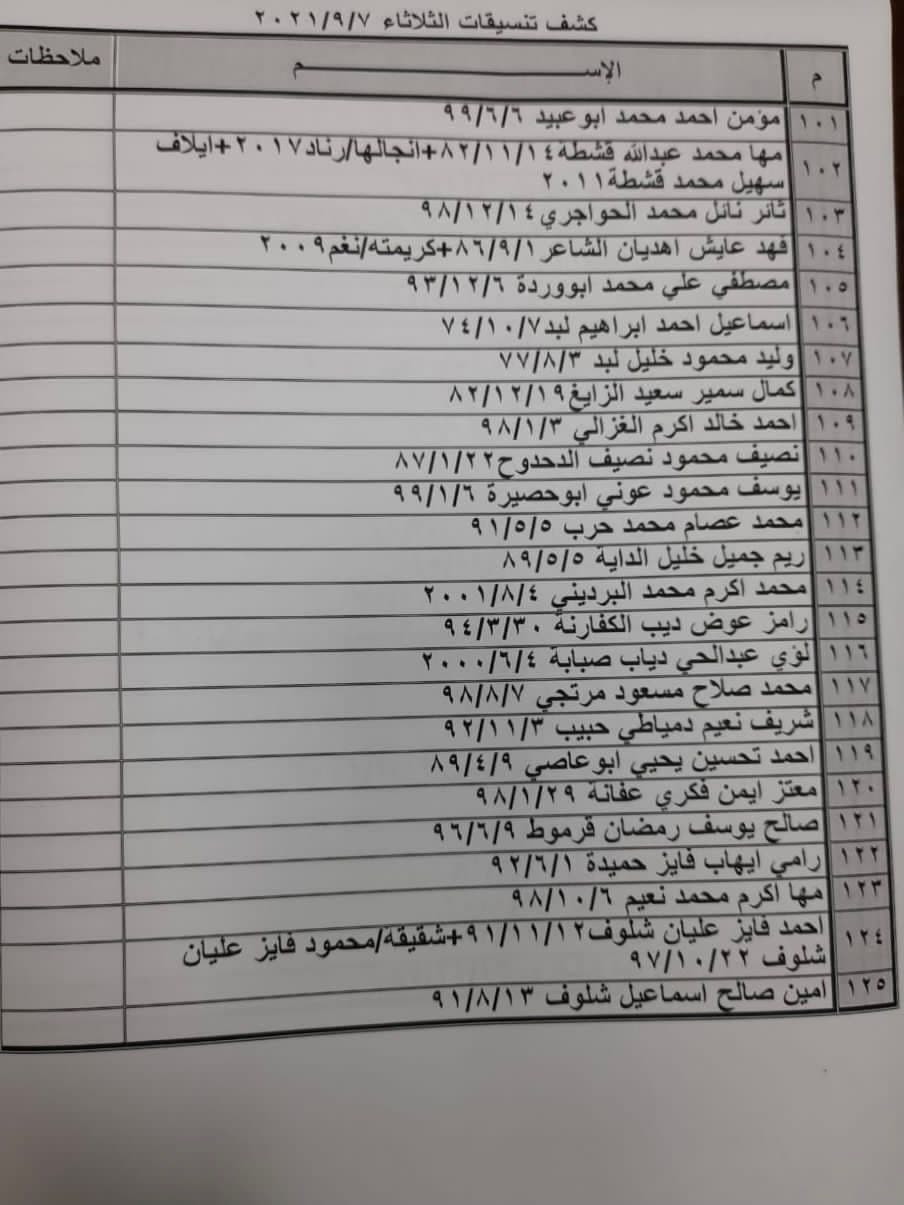 كشف تنسيقات الثلاثاء ٢٠٢١/٩/٧
م الإســـــــــــــــــــم ملاحظات
١٠١ مؤمن احمد محمد ابوعبيد ٩٩/٦/٦
١٠٢ مها محمد عبدالله قشطة٨٢/١١/١٤+انجالها/رناد٢٠١٧+ايلاف
سهيل محمد قشطة٢٠١١
١٠٣ ثائر نائل محمد الحواجري٩٨/١٢/١٤
١٠٤ فهد عايش اهديان الشاعر٨٦/٩/١+كريمته/نغم٢٠٠٩
١٠٥ مصطفي علي محمد ابووردة ٩٣/١٢/٦
١٠٦ اسماعيل احمد ابراهيم لبد٧٤/١٠/٧
١٠٧ وليد محمود خليل لبد ٧٧/٨/٣
١٠٨ كمال سمير سعيد الزايغ٨٢/١٢/١٩
١٠٩ احمد خالد اكرم الغزالي ٩٨/١/٣
١١٠ نصيف محمود نصيف الدحدوح٨٧/١/٢٢
١١١ يوسف محمود عوني ابوحصيرة ٩٩/١/٦
١١٢ محمد عصام محمد حرب ٩١/٥/٥
١١٣ ريم جميل خليل الداية ٨٩/٥/٥
١١٤ محمد اكرم محمد البرديني ٢٠٠١/٨/٤
١١٥ رامز عوض ديب الكفارنة ٩٤/٣/٣٠
١١٦ لؤي عبدالحي دياب صبابة ٢٠٠٠/٦/٤
١١٧ محمد صلاح مسعود مرتجي ٩٨/٨/٧
١١٨ شريف نعيم دمياطي حبيب ٩٢/١١/٣
١١٩ احمد تحسين يحيي ابوعاصي ٨٩/٤/٩
١٢٠ معتز ايمن فكري عفانة ٩٨/١/٢٩
١٢١ صالح يوسف رمضان قرموط ٩٦/٦/٩
١٢٢ رامي ايهاب فايز حميدة ٩٢/٦/١
١٢٣ مها اكرم محمد نعيم ٩٨/١٠/٦
١٢٤ احمد فايز عليان شلوف٩١/١١/١٢+شقيقة/محمود فايز عليان
شلوف ٩٧/١٠/٢٢
١٢٥ امين صالح اسماعيل شلوف ٩١/٨/١٣